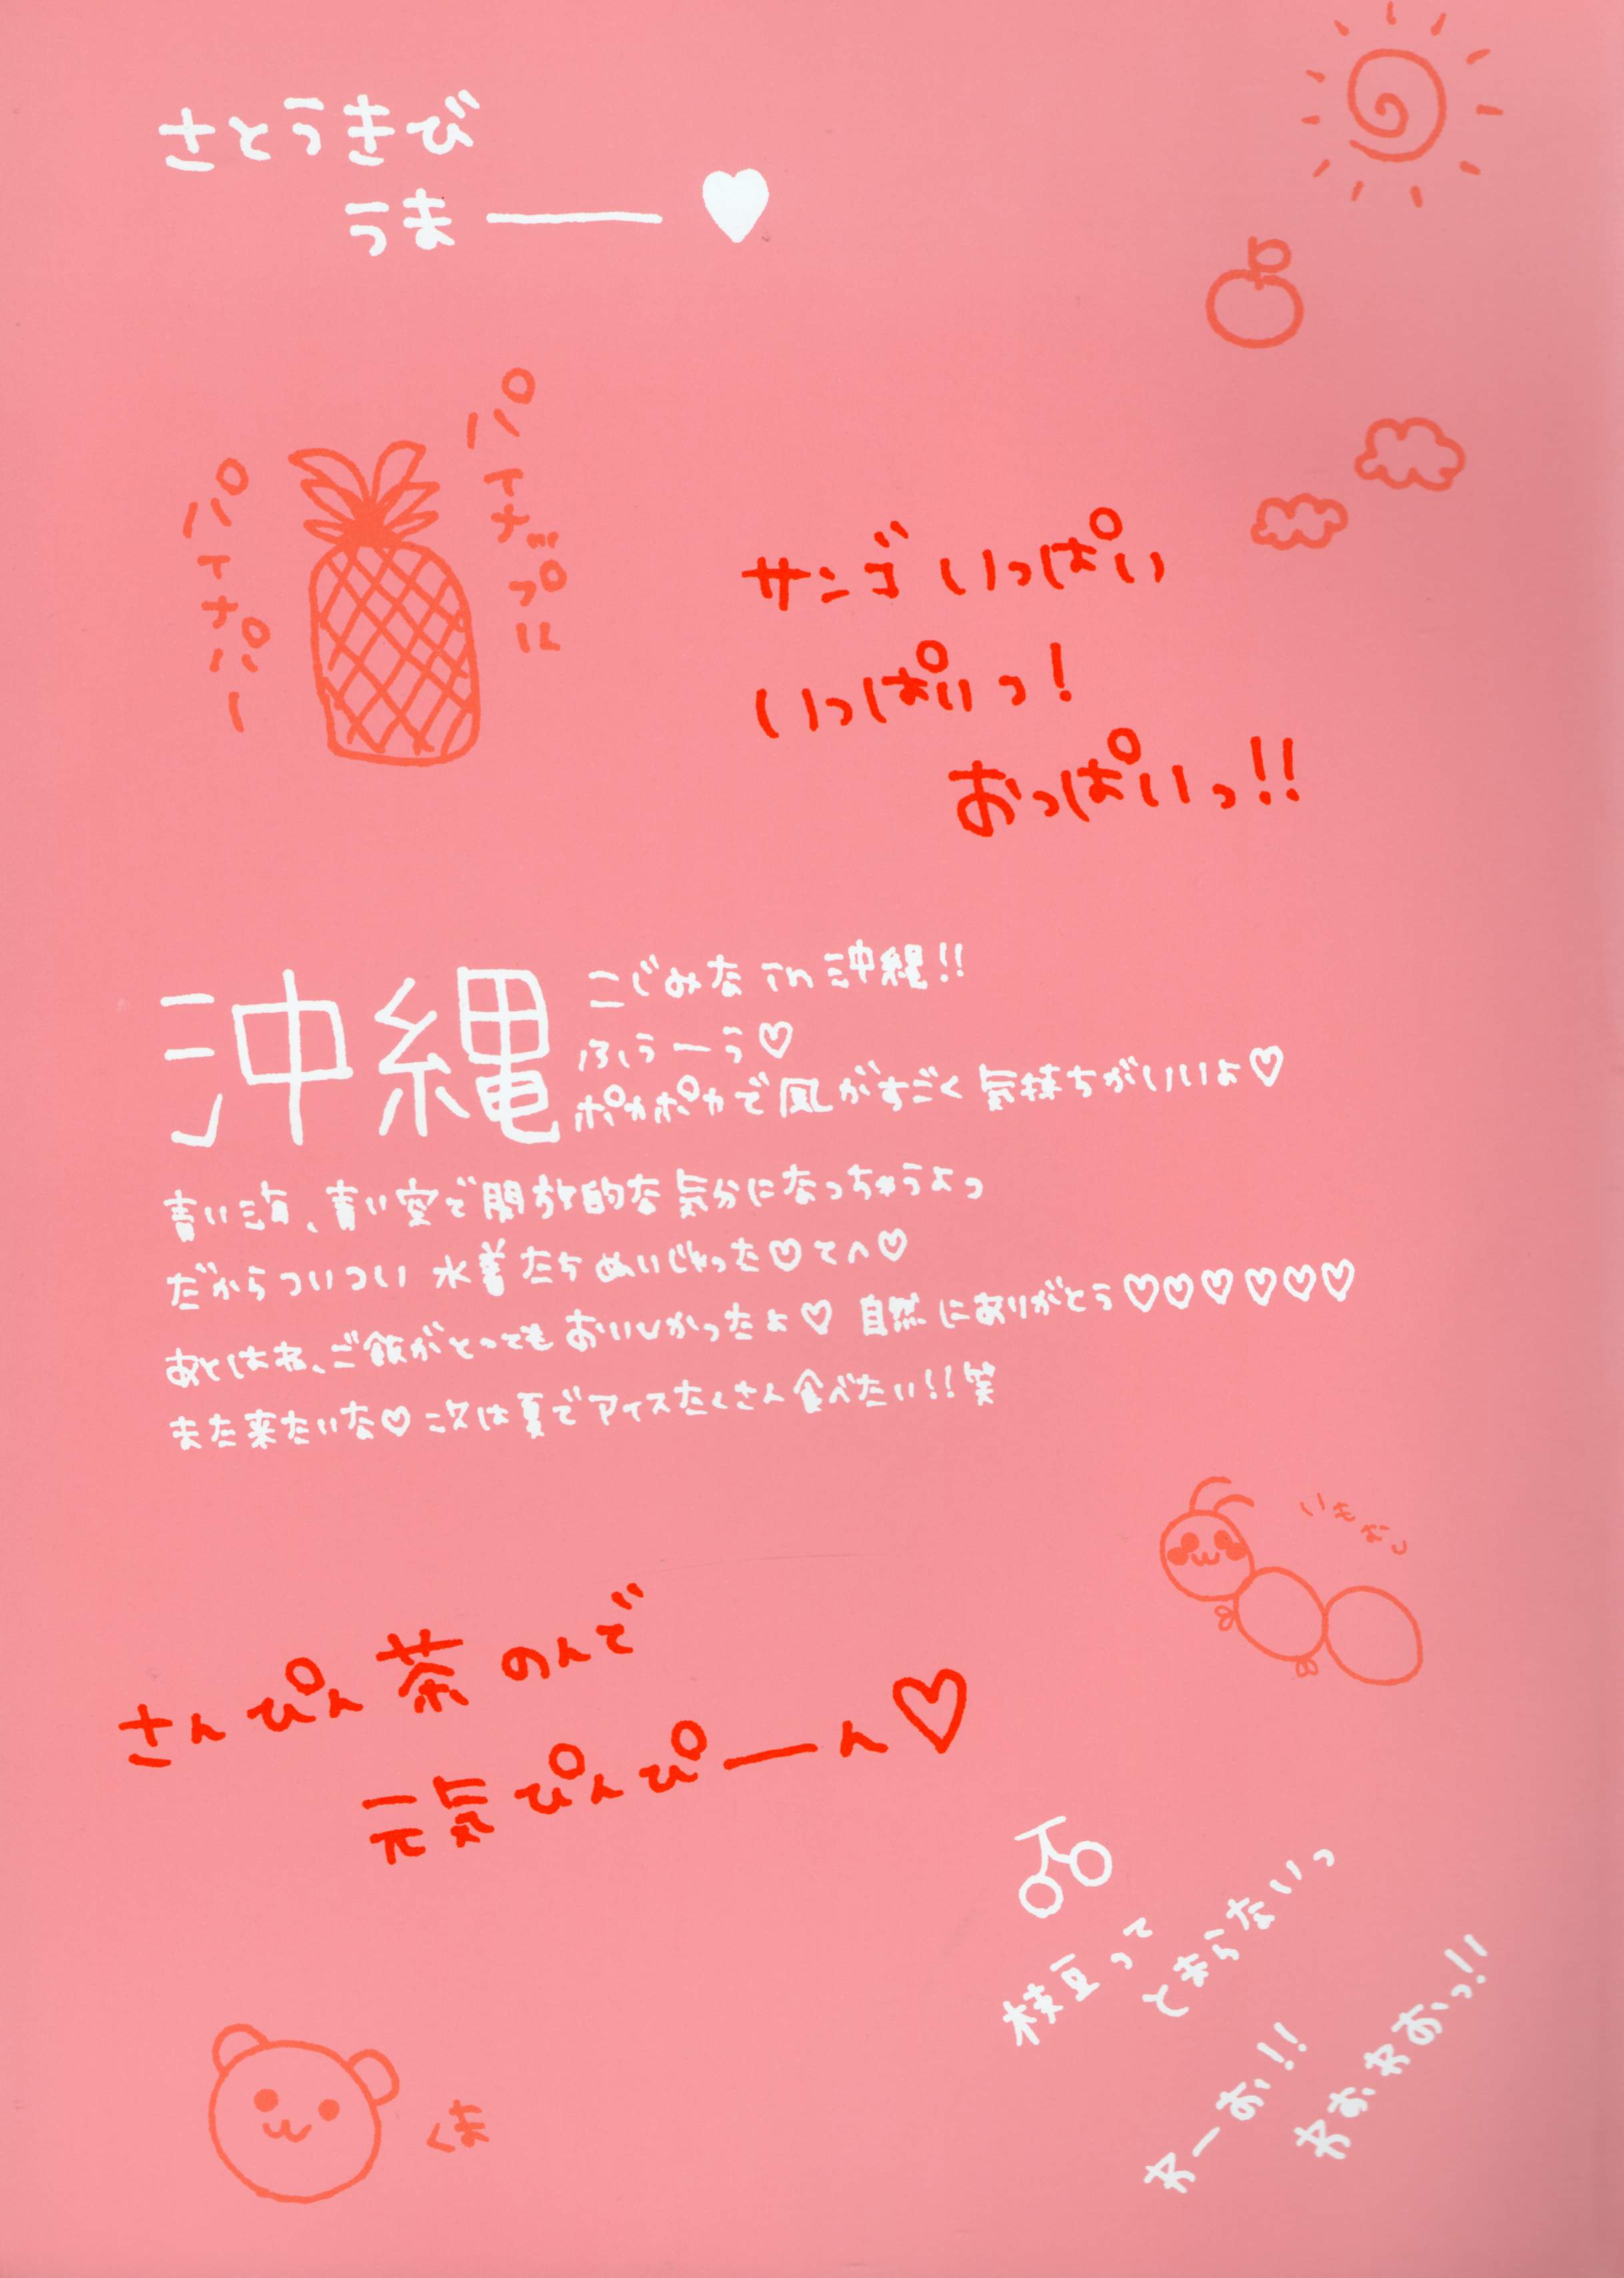 さとうきび
うまー♥
パイナップル
パイナパー
サンゴいっぱい
いっぱいっ!
おっぱいっ!!
沖縄
こじみな in 沖縄!!
ふぅーう♡
ポカポカで風がすごく気持ちがいいよ♡
青い海、青い空で開放的な気分になっちゃうよっ
だからついつい水着たちぬいじゃった♡てへ♡
あとはね、ご飯がとってもおいしかったよ♡ 自然にありがとう♡♡♡♡♡♡
また来たいな♡次は夏でアイスたくさん食べたい!!笑
さんぴん茶のんで
元気ぴんぴーん♡
枝豆って
とまらないっ
わーお!!
わおわおっ!!
くま